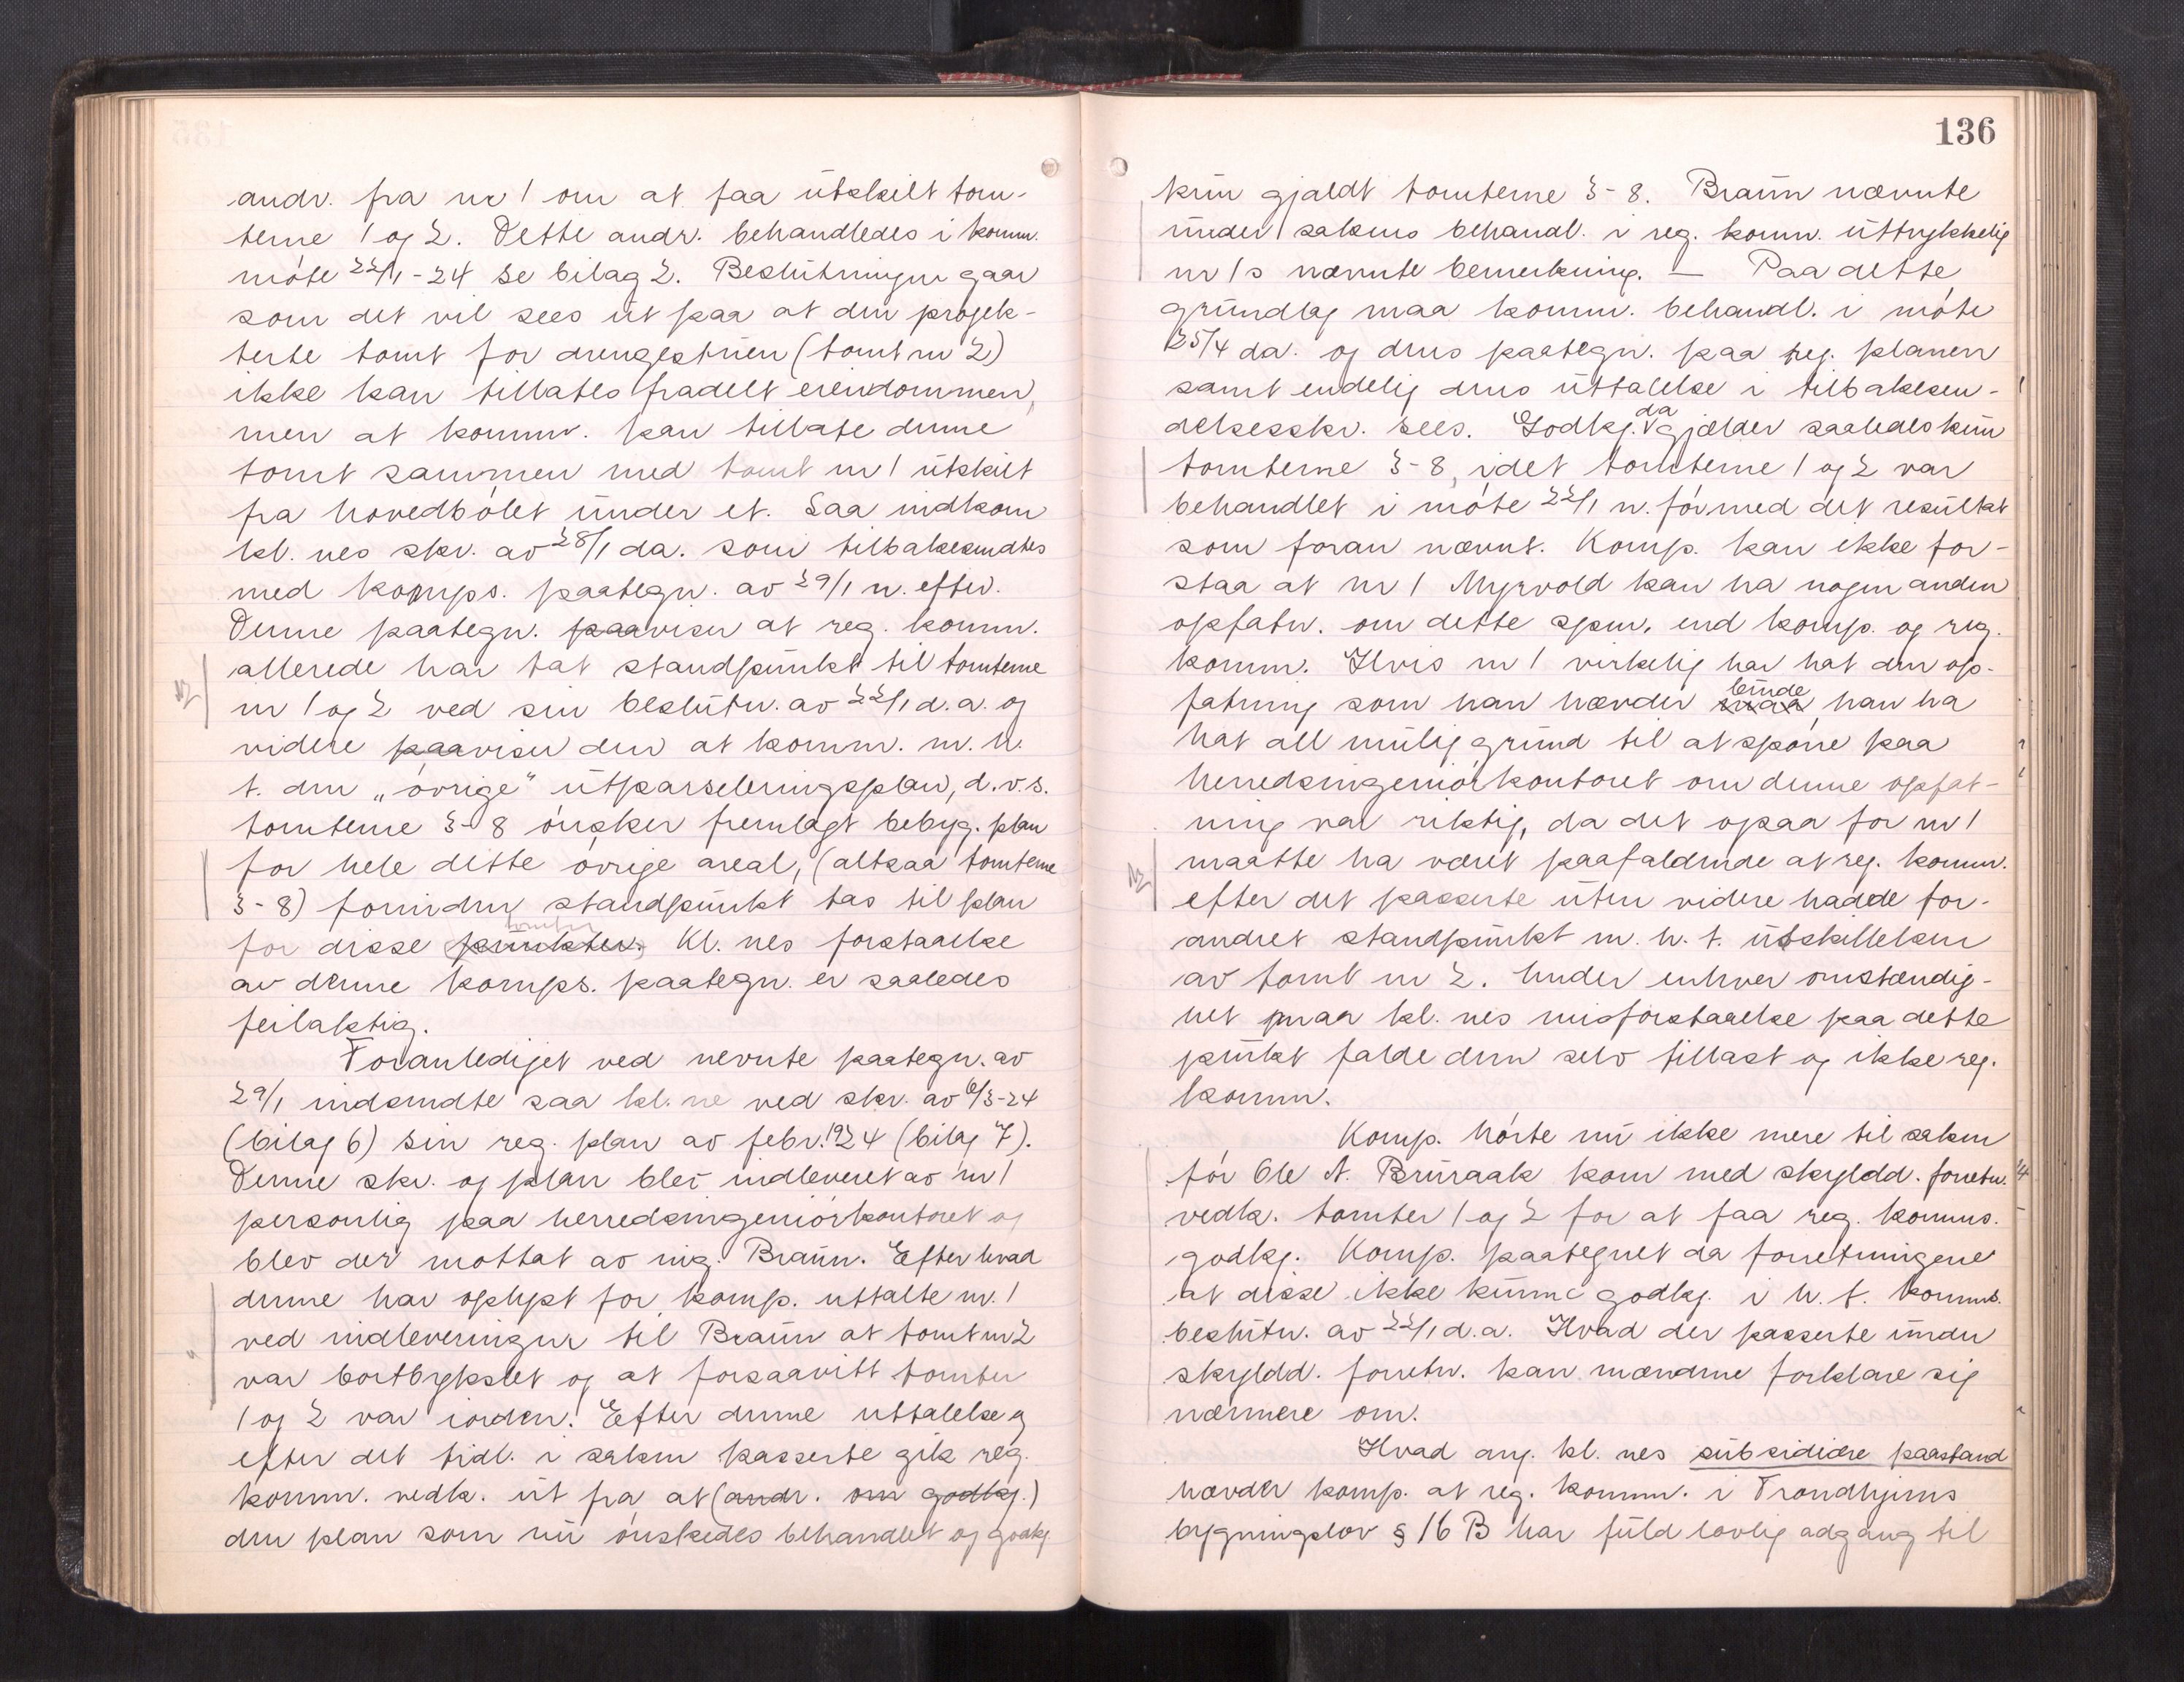 andr. fra nr 1 om at faa utskilt tom-
terne 1 og 2. Dette andr. behandledes i komm.
møte 22/1-24 se bilag 2. Beslutningen gaar
som det vil sees ut paa at den projek-
terte tomt for drengestuen (tomt nr 2)
ikke kan tillates fradelt eiendommen,
men at komm. kan tillate denne
tomt sammen med tomt nr 1 utskilt
fra hovedbølet under et. Saa indkom
kl. nes skr. av 28/1 da. som tilbakesendtes
med komps. paategn. av 29/1 n. efter.
Denne paategn. paaviser at reg. komm.
allerede har tat standpunkt til tomterne
nr 1 og 2 ved sin beslutn. av 22/1 d.a. og
videre paaviser den at komm. m. h.
t. den "øvrige" utparseleringsplan, d.v.s.
tomterne 3-8 ønsker fremlagt bebyg. plan
for hele dette øvrige areal, (altsaa tomterne
3-8) forinden standpunkt tas til plan
for disse punkter. tomter Kl. nes forstaaelse
av denne komps. paategn. er saaledes
feilaktig.
Foranlediget ved nevnte paategn. av
29/1 indsendte saa kl. ne ved skr. av 6/3-24
(bilag 6) sin reg. plan av febr. 1924 (bilag 7).
Denne skr. og plan blev indleveret av nr 1
personlig paa herredsingeniørkontoret og
blev der mottat av ing. Braun. Efter hvad
denne har oplyst for komp. uttalte nr. 1
ved indleveringen til Braun at tomt nr 2
var bortbykslet og at forsaavitt tomter
1 og 2 var iorden. Efter denne uttalelse og
efter det tidl. i saken passerte gik reg.
komm. vedk. ut fra at (andr. om godkj.)
den plan som nu ønskedes behandlet og godkj
136
kun gjaldt tomterne 3-8. Braun nævnte
under sakens behandl. i reg. komm. uttrykkelig
nr 1s nævnte bemerkning. — Paa dette
grundlag maa komm. behandl. i møte
25/4 da. og dens paategn. paa reg. planen
samt endelig dens uttalelse i tilbakesen-
delsesskr. sees. Godkj. da gjælder saaledes kun
tomterne 3-8, idet tomterne 1 og 2 var
behandlet i møte 22/1 n. før med det resultat
som foran nævnt. Komp. kan ikke for-
staa at nr 1 Myrvold kan ha nogen anden
opfatn. om dette spm. end komp. og reg.
komm. Hvis nr 1 virkelig har hat den op-
fatning som han hævder maa burde han ha
hat all mulig grund til at spørre paa
herredsingeniørkontoret om denne opfat-
ning var riktig, da det ogsaa for nr 1
maatte ha været paafaldende at reg. komm.
efter det passerte uten videre hadde for-
andret standpunkt m. h. t. utskillelsen
av tomt nr 2. Under enhver omstændig-
het maa kl. nes misforstaaelse paa dette
punkt falde dem selv tillast og ikke reg.
komm.
Komp. hørte nu ikke mere til saken
før Ole N. Bruraak kom med skyldd. forretn.
vedk. tomter 1 og 2 for at faa reg. komms.
godkj. Komp. paategnet da forretningene
at disse ikke kunne godkj. i h. t. komms.
beslutn. av 22/1 d.a. Hvad der passerte under
skyldd. forretn. kan mændene forklare sig
nærmere om.
Hvad ang. kl. nes subsidiære paastand
hævder komp. at reg. komm. i Trondhjems
bygningslov § 16 B har fuld lovlig adgang til